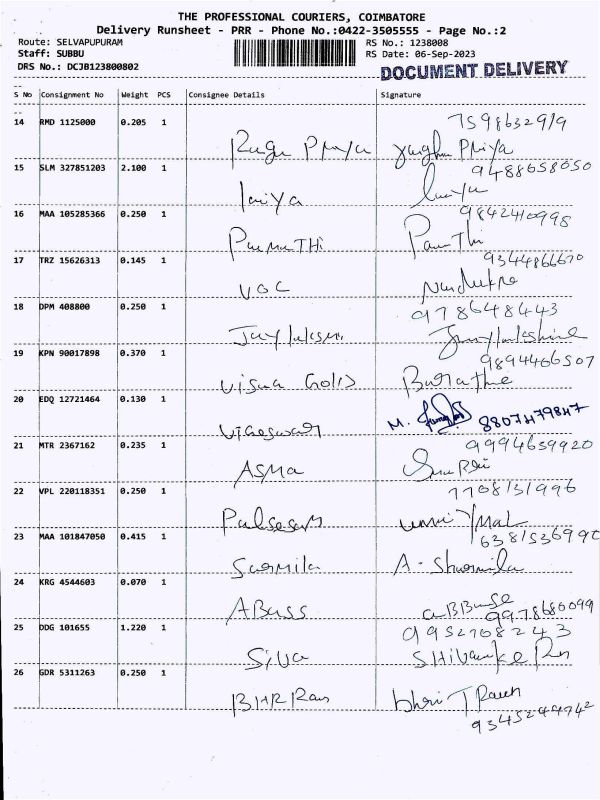 THE PROFESSIONAL COURIERS, COIMBATORE
Delivery Runsheet - PRR - Phone No.:0422-3505555 - Page No.:2
Route: SELVAPUPURAM RS No.: 1238008
Staff: SUBBU RS Date: 06-Sep-2023
DRS No.: DCJB123800802 DOCUMENT DELIVERY
S No Consignment No Weight PCS Consignee Details Signature
14 RMD 1125000 0.205 1
Priya Priya
15 SLM 327851203 2.100 1 9488658050
Iniya
16 MAA 105285366 0.250 1 9842410998
17 TRZ 15626313 0.145 1 9344866670
VOC
18 DPM 408800 0.250 1 978648443
19 KPN 90017898 0.370 1 9894466507
20 EDQ 12721464 0.130 1
M. 8807479847
21 MTR 2367162 0.235 1 9994659920
ASMA
22 VPL 220118351 0.250 1 7708131996
23 MAA 101847050 0.415 1
Sarmila A. Sharmila
24 KRG 4544603 0.070 1
ABuss 9978680099
25 DDG 101655 1.220 1 9952708243
Siva
26 GDR 5311263 0.250 1